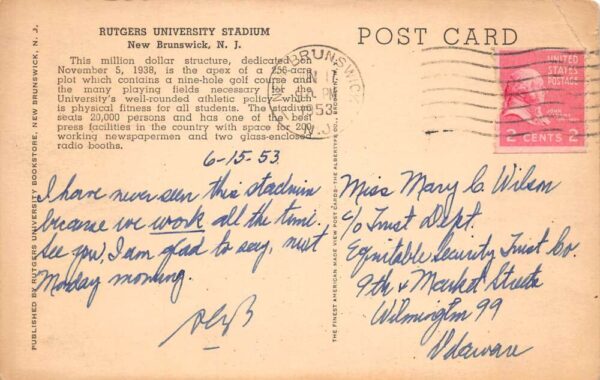 RUTGERS UNIVERSITY STADIUM
New Brunswick, N. J.
This million dollar structure, dedicated on
November 5, 1938, is the apex of a 256-acre
plot which contains a nine-hole golf course and
the many playing fields necessary for the
University's well-rounded athletic policy which
is physical fitness for all students. The stadium
seats 20,000 persons and has one of the best
press facilities in the country with space for 200
working newspapermen and two glass-enclosed
radio booths.
6-15-53
I have never seen this stadium
because we work all the time.
See you, I am glad to say, next
Monday morning.
PUBLISHED BY RUTGERS UNIVERSITY BOOKSTORE, NEW BRUNSWICK, N. J.
THE FINEST AMERICAN MADE VIEW POST CARDS. THE ALBERTYPE CO.,
POST CARD
NEW BRUNSWICK
PM
1953
N.J.
UNITED
STATES
POSTAGE
JOHN
2 CENTS 2
Miss Mary C. Wilson
c/o Trust Dept.
Equitable Security Trust Co.
9th & Market Streets
Wilmington 99
Delaware